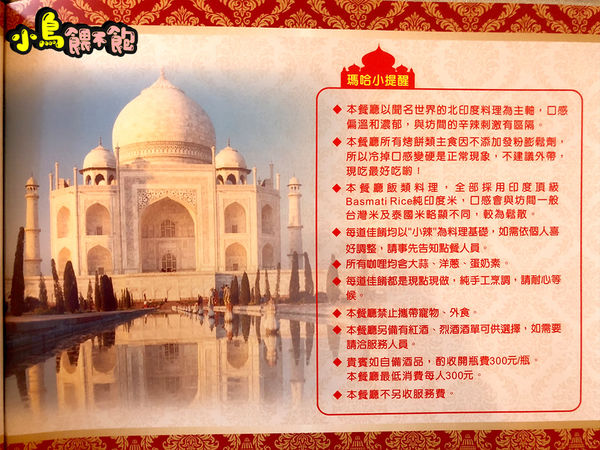 小鳥餵不飽
瑪哈小提醒
◆ 本餐廳以聞名世界的北印度料理為主軸，口感
偏溫和濃郁，與坊間的辛辣刺激有區隔。
◆ 本餐廳所有烤餅類主食因不添加發粉膨鬆劑，
所以冷掉口感變硬是正常現象，不建議外帶，
現吃最好吃喲！
◆ 本餐廳飯類料理，全部採用印度頂級
Basmati Rice純印度米，口感會與坊間一般
台灣米及泰國米略顯不同，較為鬆散。
◆ 每道佳餚均以"小辣"為料理基礎，如需依個人喜
好調整，請事先告知點餐人員。
◆ 所有咖哩均含大蒜、洋蔥、蛋奶素。
◆ 每道佳餚都是現點現做，純手工烹調，請耐心等
候。
◆ 本餐廳禁止攜帶寵物、外食。
◆ 本餐廳另備有紅酒、烈酒酒單可供選擇，如需要
請洽服務人員。
◆ 貴賓如自備酒品，酌收開瓶費300元/瓶。
本餐廳最低消費每人300元。
◆ 本餐廳不另收服務費。